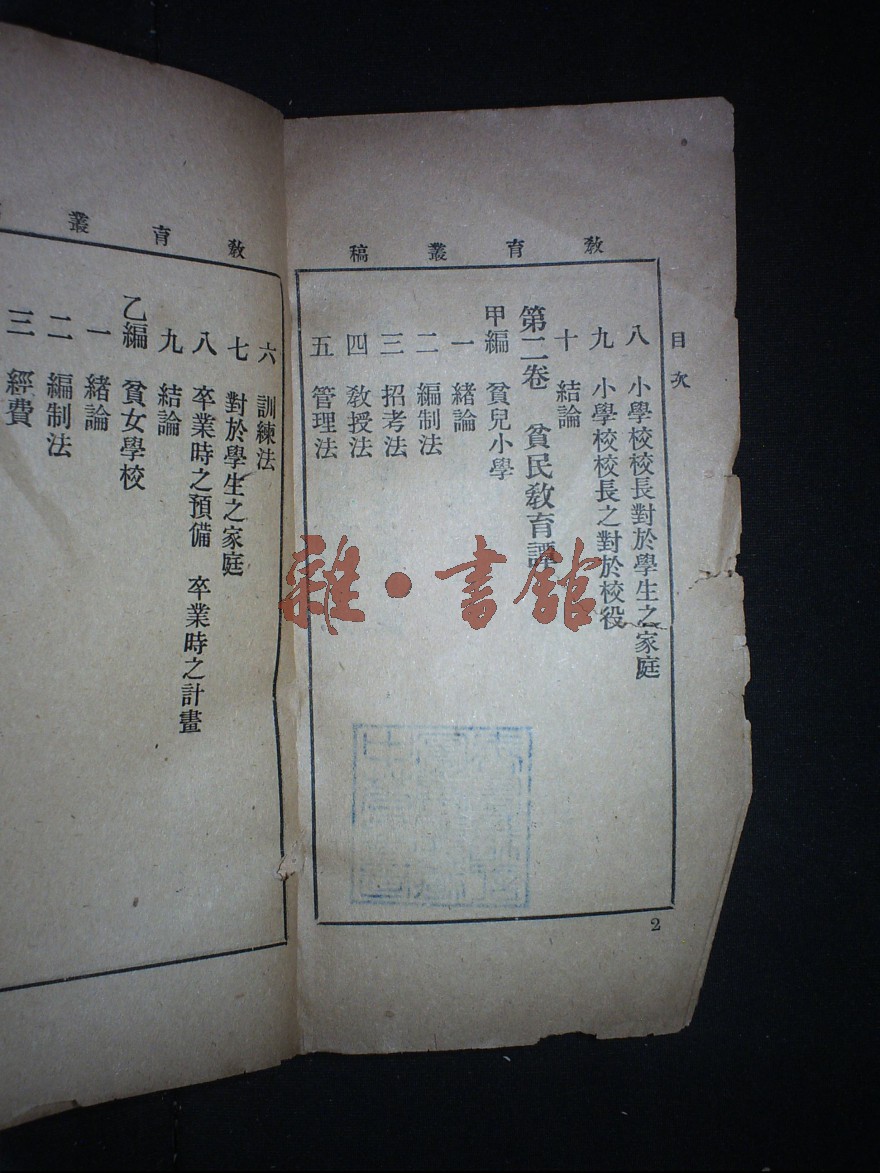 教育叢稿
目次
八 小學校校長對於學生之家庭
九 小學校校長之對於校役
十 結論
第二卷 貧民教育譚
甲編 貧兒小學
一 緒論
二 編制法
三 招考法
四 教授法
五 管理法
2
教育叢
六 訓練法
七 對於學生之家庭
八 卒業時之預備 卒業時之計畫
九 結論
乙編 貧女學校
一 緒論
二 編制法
三 經費
雜·書館